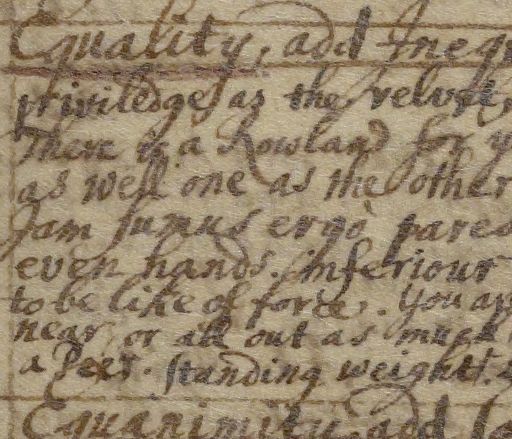 Equality, add Inequ
priviledge as the velvet,
There is a Rowland for y
as well one as the other
Jam sumus ergo pares
even hands. Inferiour
to be like of force. You ar
near, or all out as much
a Peer. standing weight.
Equanimity. add